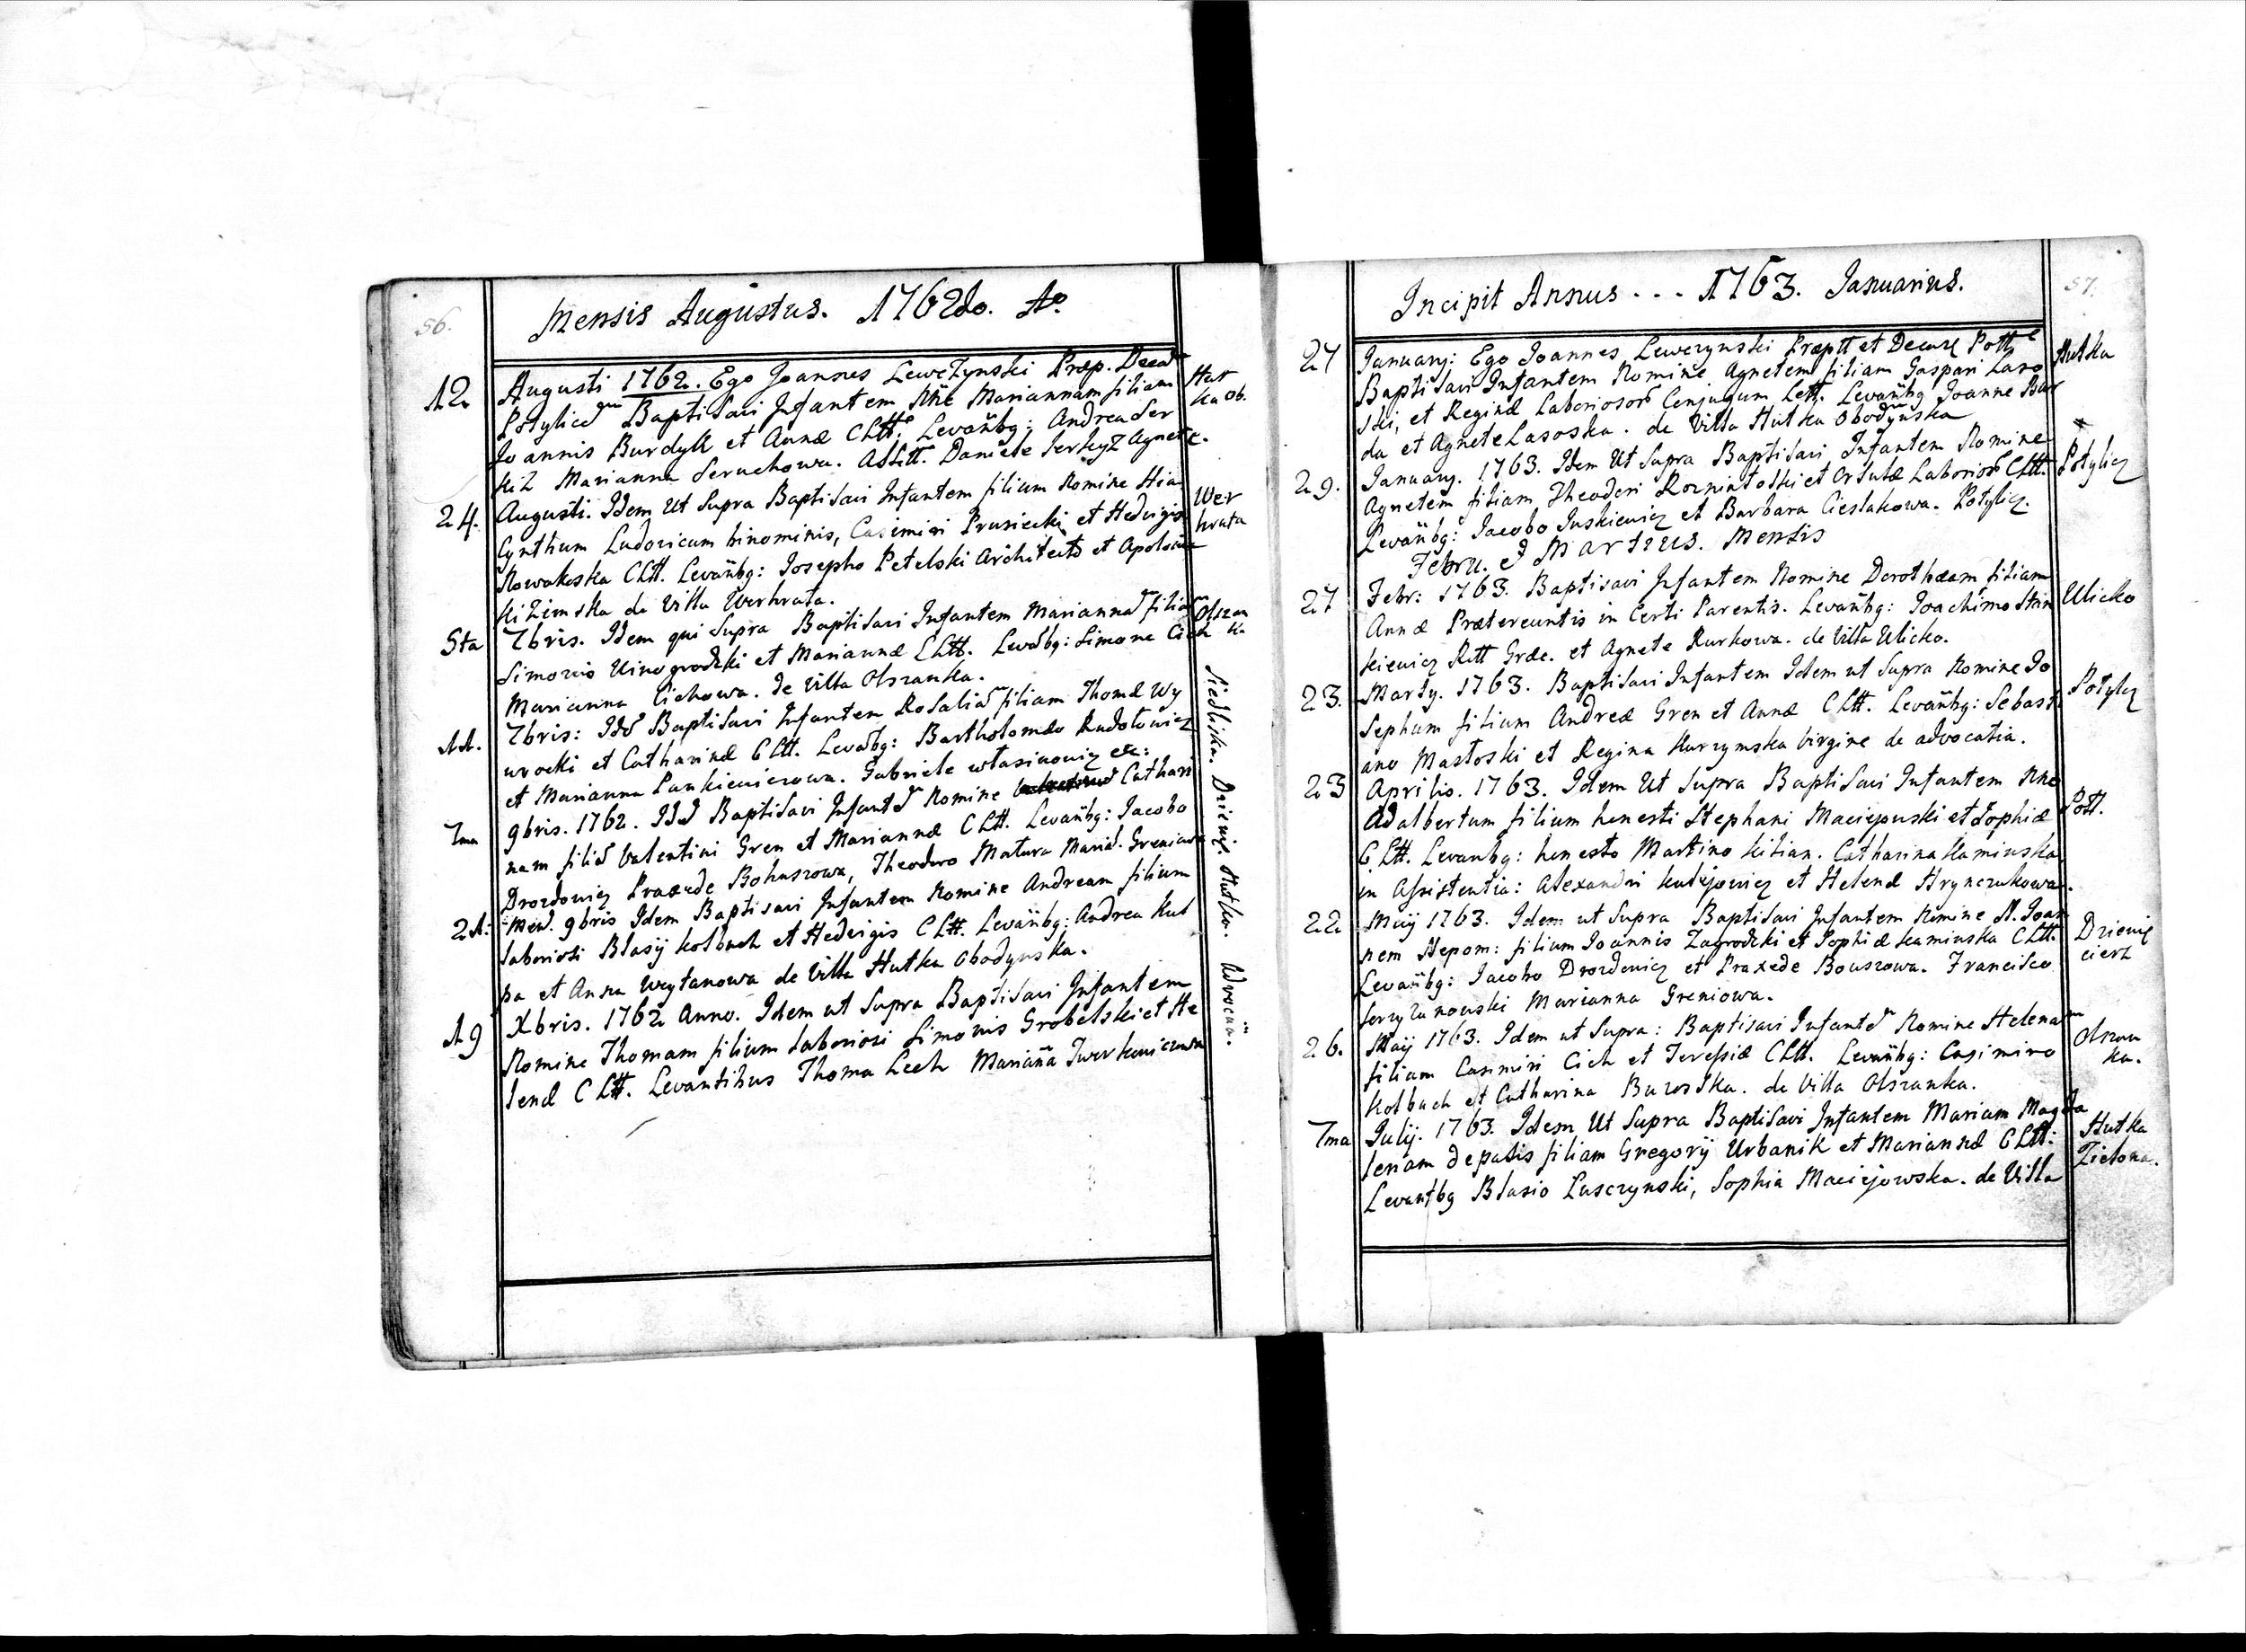 56.
Mensis Augustus. 1762do. Ao
12 Augusti 1762. Ego Joannes Lewczynski Præp. Decan Hut
Potylicen Baptisavi Infantem Nne Mariannam filiam ka Ob.
Joannis Burdyk et Annæ CLtt. Levantbg: Andrea Ser
kiz Marianna Seruchowa. Assttt. Daniele Serkyz Agnete.
24. Augusti. Idem Ut Supra Baptisavi Infantem filium Nomine Hia Wer
Cynthum Ludovicum binominis, Casimiri Prusiecki et Hedvigis hrata
Nowakoska CLtt. Levantbg: Josepho Petelski Architecto et Apolonia
kizimska de Villa Werhrata.
5ta 7bris. Idem qui Supra Baptisavi Infantem Marianna filia Olszan
Simonis Winogrodzki et Mariannæ CLtt. Levatbg: Simone Cich ka
Marianna Cichowa. de Villa Olszanka.
11. 7bris: Id Baptisavi Infantem Rosalia filiam Thomæ Wy
wrocki et Catharinæ CLtt. Levatbg: Bartholomæo Rudolowicz
et Marianna Pankiewiczowa. Gabriele Własinowicz etc:
7ma 9bris. 1762. Id Baptisavi Infante Nomine Cathari
nam filia Valentini Gren et Mariannæ CLtt. Levantbg: Jacobo
Drozdowicz Praxede Bohuszowa, Theodoro Matura Maria. Greniowa
21. Men. 9bris Idem Baptisavi Infantem Nomine Andream filium
laboriosi Blasij Kolbuch et Hedvigis CLtt. Levantbg: Andrea Kul
pa et Anna Woytanowa de Villa Hutka Obodynska.
19 Xbris. 1762 Anno. Idem ut Supra Baptisavi Infantem
Nomine Thomam filium laboriosi Simonis Grobelski et He
lenæ CLtt. Levantibus Thoma Lech Marianna Twerkowiczowa
Siedliska. Dziewię. Hutka.
57.
Incipit Annus... 1763. Januarius.
27 Januarij: Ego Joannes Lewczynski Præptt et Decanz Pottz Hutka
Baptisavi Infantem Nomine Agnetem filiam Gaspari Laso
ski, et Reginæ Laboriosor Conjugum Lett. Levantbg Joanne Bur
da et Agnete Lasoska. de Villa Hutka Obodynska
29. January. 1763. Idem Ut Supra Baptisavi Infantem Nomine Potylicz
Agnetem filiam Theodori Rozniatoski et Orsulæ Laborior CLtt.
Levantbg: Jacobo Juskiewicz et Barbara Cieslakowa. Potylicz.
Febru. et Martius. Mensis
27 Febr: 1763. Baptisavi Infantem Nomine Dorothæam filiam Ulicko
Annæ Prætereuntis in Certi Parentis. Levantbg: Joachimo Stan
kiewicz Ritt Græc. et Agnete Kurkowa. de Villa Ulicko.
23. Martij. 1763. Baptisavi Infantem Idem ut Supra Nomine Jo Potylicz
sephum filium Andreæ Gren et Annæ CLtt. Levantbg: Sebasti
ano Mastoski et Regina Kurzymska Virgine de advocatia.
23 Aprilis. 1763. Idem Ut Supra Baptisavi Infantem Nne
Adalbertum filium honesti Stephani Maciejowski et Sophiæ Pott.
CLtt. Levantbg: honesto Martino Kilian. Catharina Kaminska
in Assistentia: Alexandri Kulyjowicz et Helenæ Hrynczukowa.
22 Maij 1763. Idem ut Supra Baptisavi Infantem Nomine St. Joan Dziewię
nem Nepom: filium Joannis Zagrodzki et Sophiæ Kaminska CLtt. cierz
Levantbg: Jacobo Drozdowicz et Praxede Bouszowa. Francisco
Marianna Greniowa.
26. Maij 1763. Idem ut Supra: Baptisavi Infante Nomine Helenam Olszan
filiam Casimiri Cich et Teressiæ CLtt. Levantbg: Casimiro ka.
Kolbuch et Catharina Burostka. de Villa Olszanka.
7ma Julij. 1763. Idem Ut Supra Baptisavi Infantem Mariam Magda Hutka
lenam depatis filiam Gregorij Urbanik et Mariannæ CLtt: Zielona.
Levantbg Blasio Luszczynski, Sophia Maciejowska. de Villa